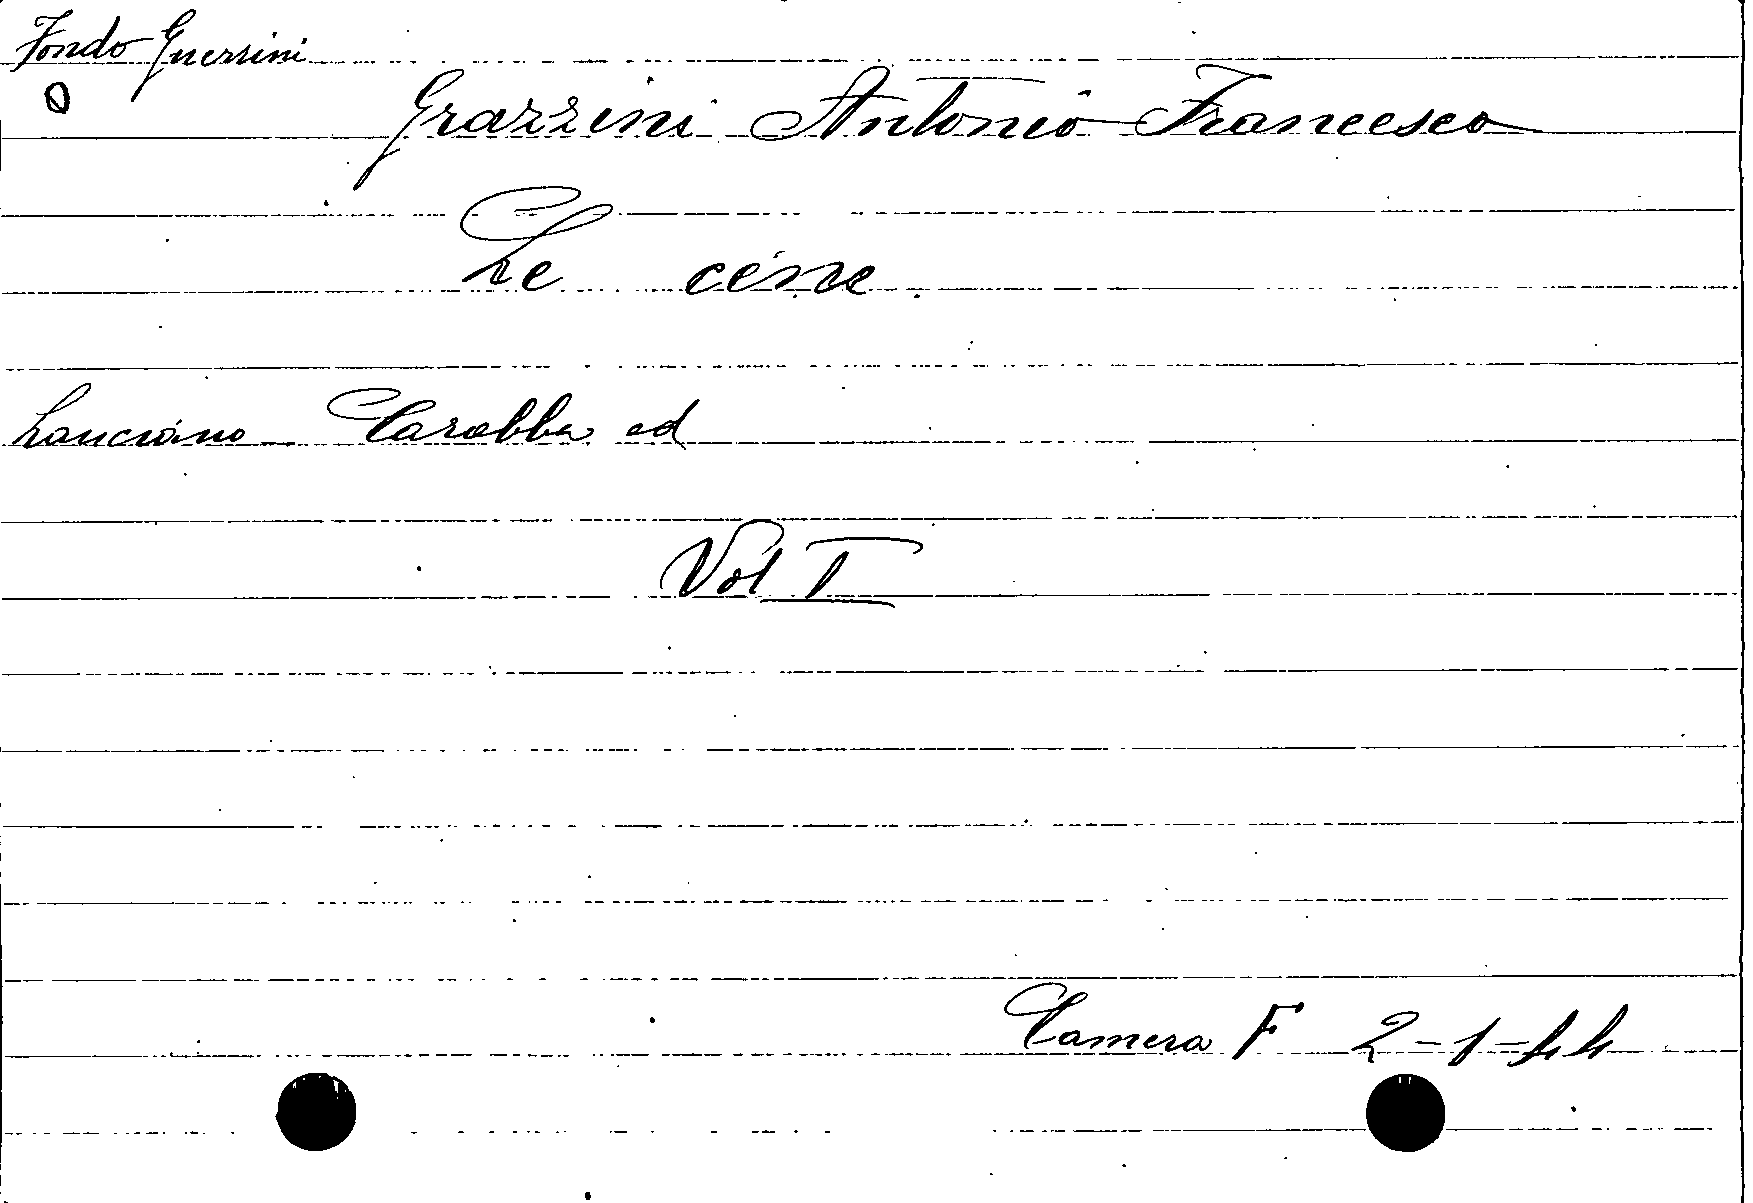 Fondo Guerrini
0
Grazzini Antonio Francesco
Le cene
Lanciano Carabba ed
Vol I
Camera F 2-1-44